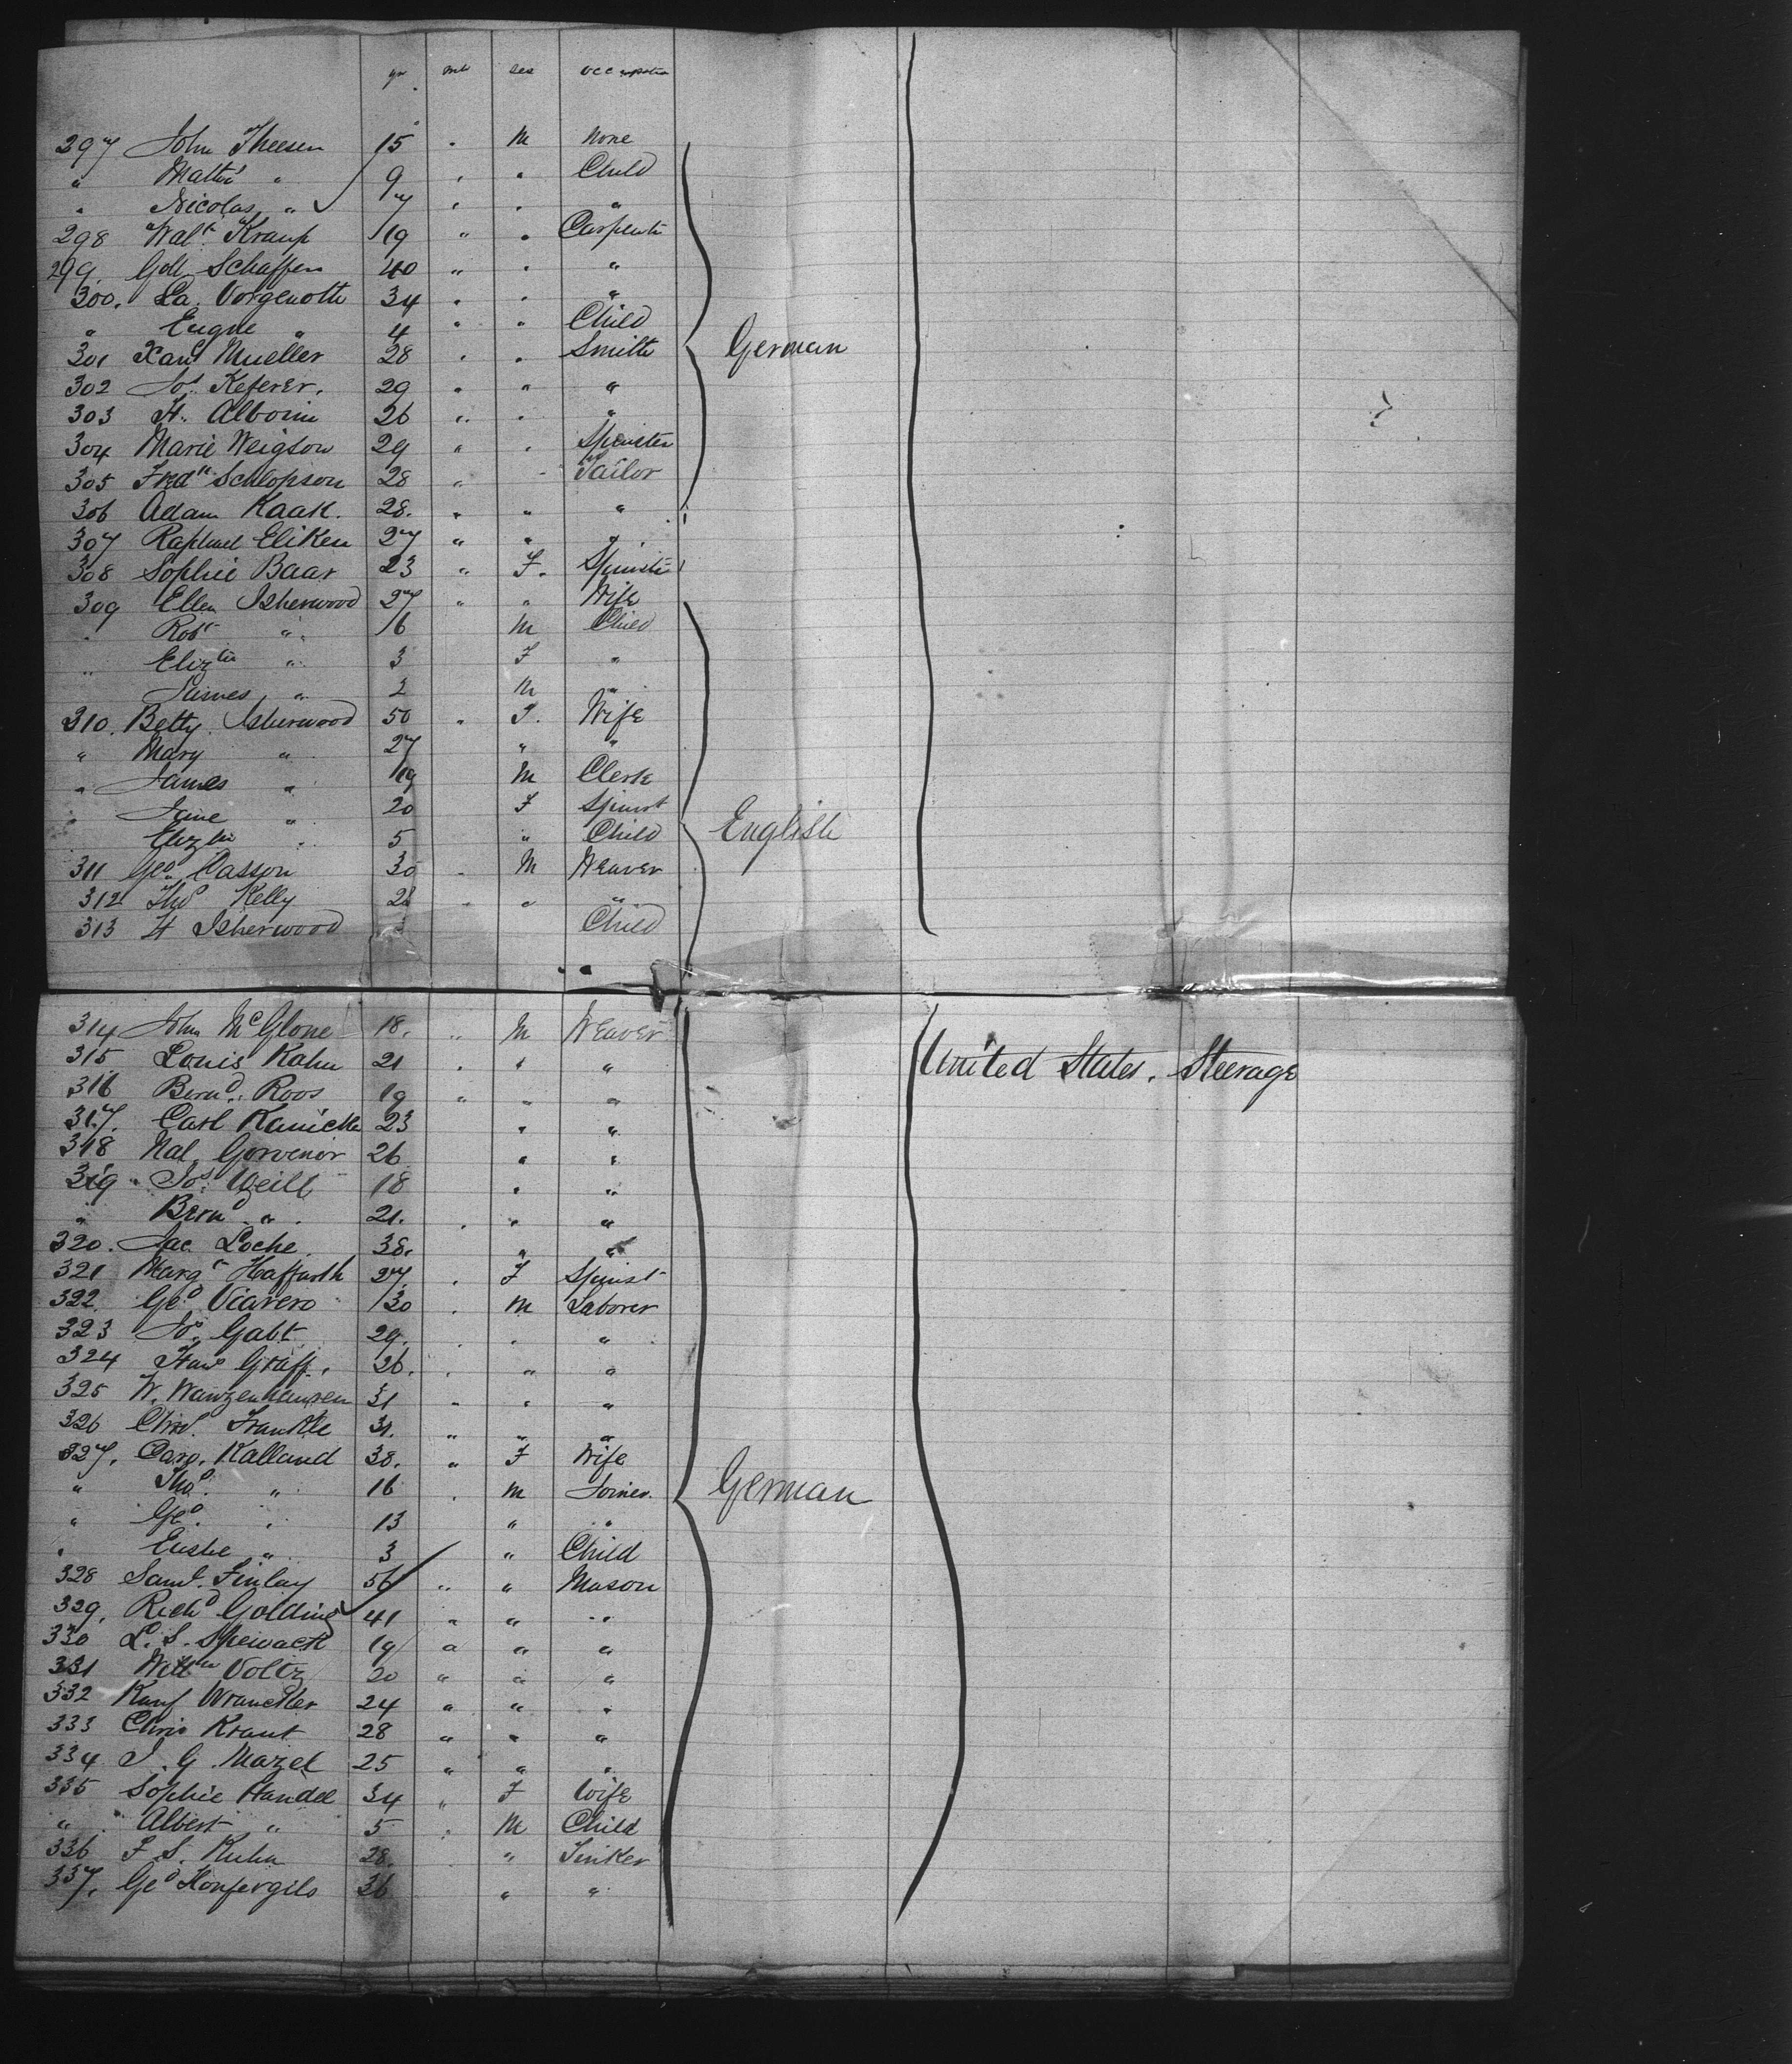 yrs mts Sex Occupation
297 John Theesen 15 " M None
" Matts " 9 " " Child
" Nicolas " 7 " " "
298 Walt. Kraup 19 " " Carpente
299. Gotl Schaffen 40 " " "
300. La. Vorgenoth 34 " " "
" Eugne " 4 " " Child
301 Xant Mueller 28 " " Smith German
302 Jos. Keferer. 29 " " "
303 H. Albonn 26 " " "
304 Marie Weigson 29 " " Spinster
305 Fredk Schlopson 28 " " Tailor
306 Adam Kaak. 28. " " "
307 Raphael Eliken 27 " " "
308 Sophie Baar 23 " F. Spinste
309 Ellen Isherwood 27 " " Wife
" Robt " 6 M Child
" Elizth " 3 F "
James " 2 M "
310. Betty Isherwood 50 " F. Wife
" Mary " 27 " "
" James " 19 M Clerk
" Jane " 20 F Spinst
Elizth " 5 " Child English
311 Geo. Casson 30 " M Weaver
312 Thos Kelly 28 " " "
313 H Isherwood Child
314 John McGlone 18. " M Weaver
315 Louis Kahn 21 " " " United States. Steerage
316 Bernd. Roos 19 " " "
317. Carl Kanicke 23 " "
318 Nal. Gorvenor 26 " "
319 Jos. Weill 18 " "
" Bernd " 21. " " "
320. Jac. Loche. 38. " "
321 Margt Haffarth 27. " F Spinst
322. Geo Viarero 30 " M Laborer
323 Jos. Gabt 29. " " "
324 Graff. 26. " " "
325 W. Wanzenhausen 31 " " "
326 Chrs. Frankle 31. " " "
327. Caro. Kalland 38. " F Wife
" Thos. " 16 " M Joiner. German
" Geo. " 13 " "
" " 3 " Child
328 Saml. Finlay 56 " " Mason
329. Richd Golding 41 " " "
330 L. S. Spewack 19 " " "
331 Willm Voltz 20 " " "
332 Kanf Wranckler 24 " " "
333 Chris Kraut 28 " " "
334 J. G. Mazel 25 " " "
335 Sophie Handel 34 " F Wife
" Albert " 5 " M Child
336 F. S. Kuhn 28. " Tinker
337. Geo Honfergils 36 " "